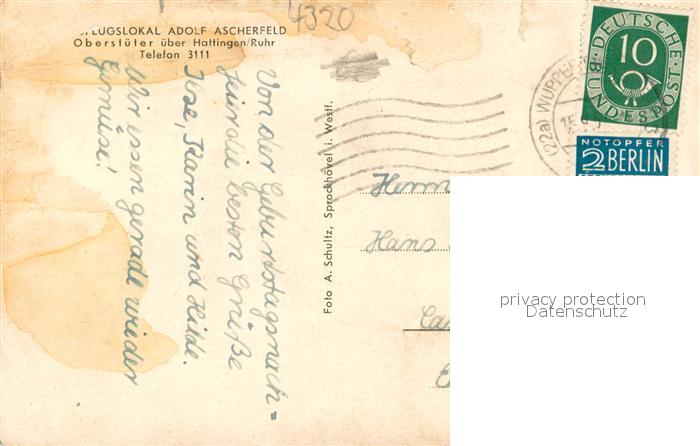 4320
FLUGSLOKAL ADOLF ASCHERFELD
Oberstüter über Hattingen/Ruhr
Telefon 3111
Von der Geburtstagsnach=
feier die besten Grüße
Ilse, Karin und Hilde.
Wir essen gerade wieder
Gemüse!
Foto A. Schultz, Sprockhövel i. Westf.
DEUTSCHE BUNDESPOST
10
(22a) WUPPER
NOTOPFER
2 BERLIN
Herrn
Hans
privacy protection
Datenschutz